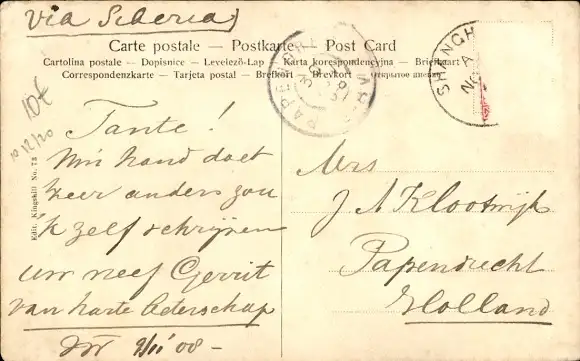 via Siberia
Carte postale — Postkarte — Post Card
Cartolina postale — Dopisnice — Levelező-Lap — Karta korespondencyjna — Briefkaart
Correspondenzkarte — Tarjeta postal — Brefkort — Brevkort — Открытое письмо
SHANGH
A
NO
PAPENDRECHT
10 €
10 12/20
Edit. Kingshill No. 73
Tante!
Mijn hand doet
zeer anders zou
'k zelf schrijven
uw neef Gerrit
van harte beterschap
9/11 08 -
Mrs
J A Klootwijk
Papendrecht
Holland